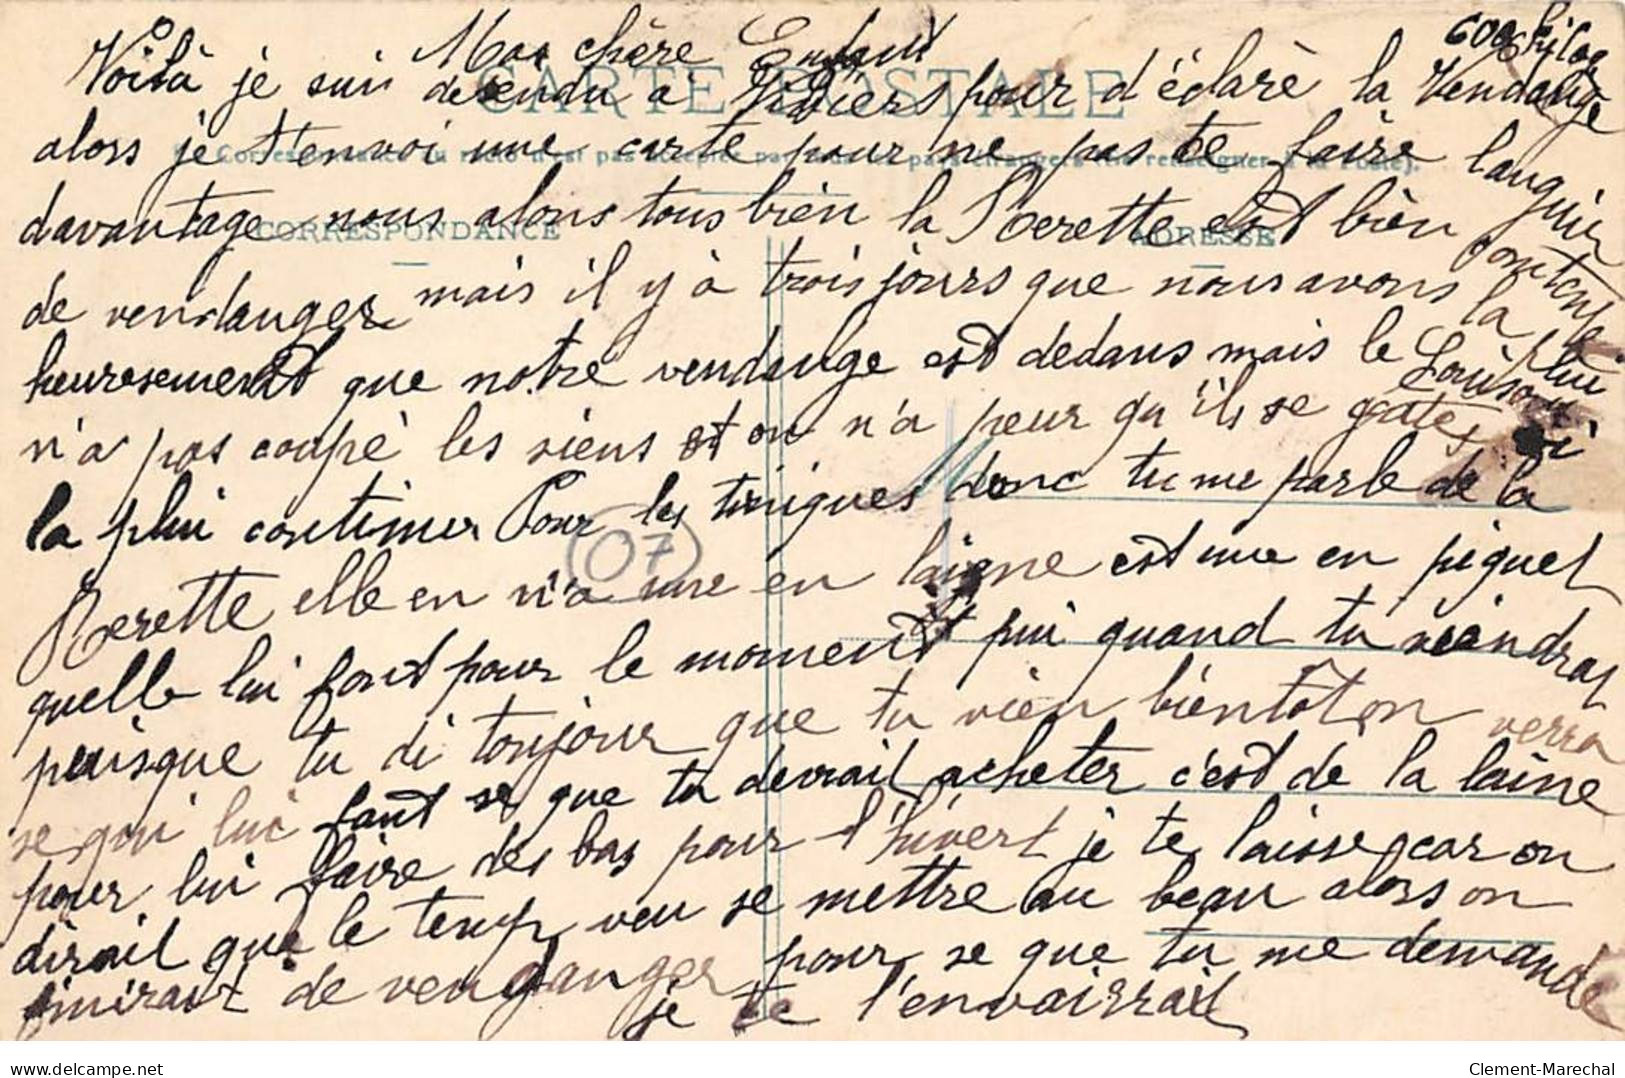 Ma chère Enfant 600 kilog
CARTE POSTALE
Voilà je suis desendu à Viviers pour d'éclaré la Vendange
alors je t'envoi une carte pour ne pas te faire languir
davantage nous alons tous bien la Rerette est bien contente
CORRESPONDANCE
ADRESSE
de vendanger mais il y à trois jours que nous avons la plui
heuresement que notre vendange est dedans mais le Louison
n'a pas coupé les siens et on n'a peur qu'ils se gate si
la plui continue Pour les tuniques donc tu me parle de la
Rerette elle en n'a une en laigne est une en piquet
quelle lui font pour le moment pui quand tu viendras
puisque tu di toujour que tu vien bientôt on verra
se qui lui faut se que tu devrait acheter c'est de la laine
pour lui faire des bas pour l'hivert je te laisse car on
dirait que le temp veu se mettre au beau alors on
finirait de vendanger pour se que tu me demande
je te l'envairrait
07
delcampe.net
Clement-Marechal